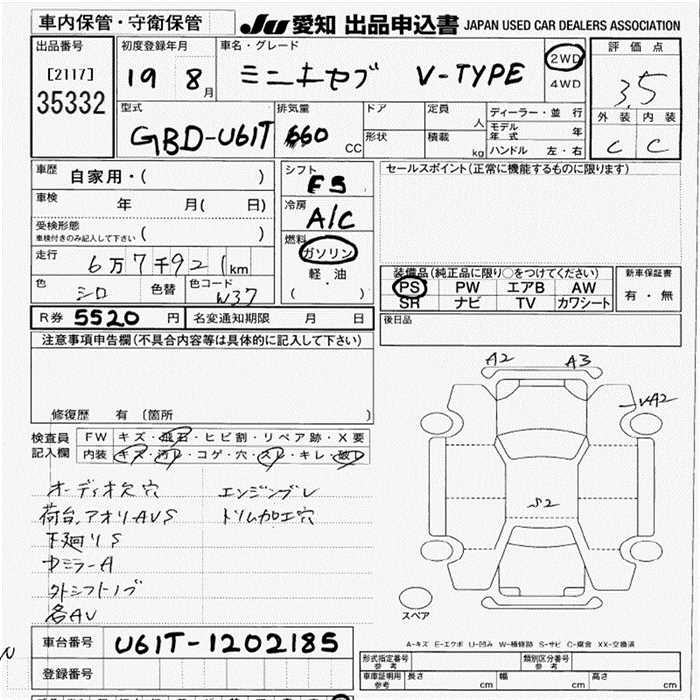 車内保管・守衛保管
JU 愛知 出品申込書 JAPAN USED CAR DEALERS ASSOCIATION
出品番号
[2117]
35332
初度登録年月
19 8月
車名・グレード
ミニキャブ V-TYPE
2WD
4WD
評価点
3.5
外装 内装
C C
型式
GBD-U61T
排気量
660 CC
ドア
形状
定員 人
積載 kg
ディーラー・並行
モデル年式 年
ハンドル 左・右
車歴
自家用・( )
車検 年 月( 日)
受検形態
車検付きのみ記入して下さい ( )
走行
6万7千921km
色 シロ 色替 色コード W37
シフト
F5
冷房
A/C
燃料
ガソリン
軽・油
( )
セールスポイント(正常に機能するものに限ります)
装備品(純正品に限り○をつけてください)
PS PW エアB AW
SR ナビ TV カワシート
新車保証書
有・無
R券 5520 円 名変通知期限 月 日
後日品
注意事項申告欄(不具合内容等は具体的に記入して下さい)
修復歴 有(箇所 )
検査員記入欄
FW キズ・飛石・ヒビ割・リペア跡・X要
内装 キズ・汚レ・コゲ・穴・スレ・キレ・破レ
オーディオ欠穴
エンジンブレ
荷台、アオリAVS
トリム加工穴
下廻りS
中ミラーA
外シフトノブ
各AV
A2 A3
VA2
S2
スペア
A-キズ E-エクボ U-凹み W-補修跡 S-サビ C-腐食 XX-交換済
車台番号 U61T-1202185
登録番号
形式指定番号 参考
類別区分番号 参考
車庫証明用 参考
長さ cm 幅 cm 高さ cm